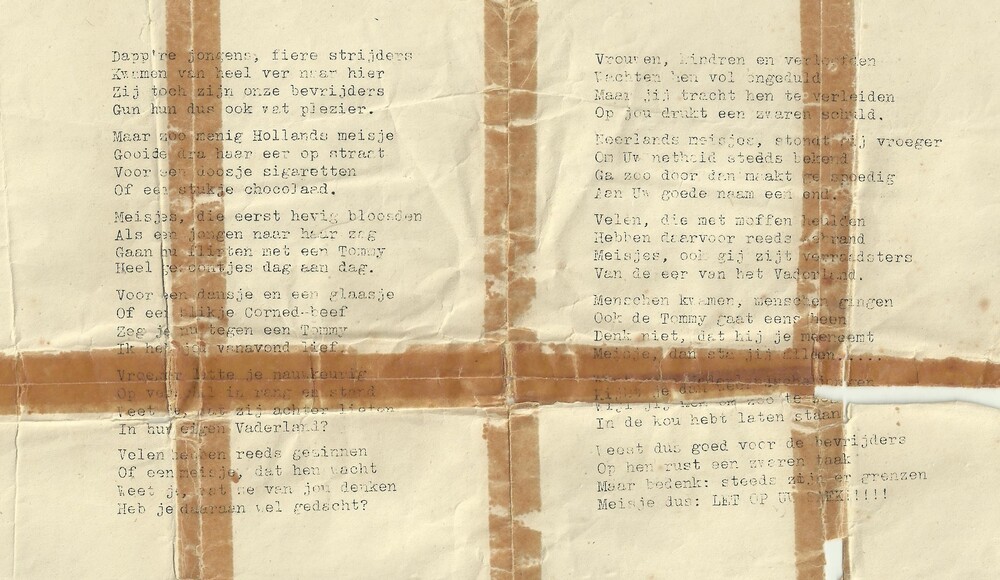 Dapp're jongens, fiere strijders
Kwamen van heel ver naar hier
Zij toch zijn onze bevrijders
Gun hun dus ook wat plezier.
Maar zoo menig Hollands meisje
Gooide dra haar eer op straat
Voor een doosje sigaretten
Of een stukje chocolaad.
Meisjes, die eerst hevig bloosden
Als een jongen naar haar zag
Gaan nu flirten met een Tommy
Heel gewoontjes dag aan dag.
Voor een dansje en een glaasje
Of een blikje Corned-beef
Zeg je nu tegen een Tommy
Ik heb jou vanavond lief.
Vroeger lette je nauwkeurig
Op verschil in rang en stand
Weet je, wat zij achter lieten
In hun eigen Vaderland?
Velen hebben reeds gezinnen
Of een meisje, dat hen wacht
Weet je, wat ze van jou denken
Heb je daaraan wel gedacht?
Vrouwen, kindren en verloofden
Wachten hen vol ongeduld
Maar jij tracht hen te verleiden
Op jou drukt een zwaren schuld.
Neerlands meisjes, stondt gij vroeger
Om Uw netheid stedds bekend
Ga zoo door dan maakt ge spoedig
Aan Uw goede naam een end.
Velen, die met moffen heulden
Hebben daarvoor reeds gebrand
Meisjes, ook gij zijt verraadsters
Van de eer van het Vaderland.
Menschen kwamen, menschen gingen
Ook de Tommy gaat eens heen
Denk niet, dat hij je meeneemt
Meisje, dan sta jij alleen.....
je dan
hem om zoo te
In de kou hebt laten staan
Weest dus goed voor de bevrijders
Op hen rust een zwaren taak
Maar bedenk: steeds zijn er grenzen
Meisje dus: LET OP UW !!!!!